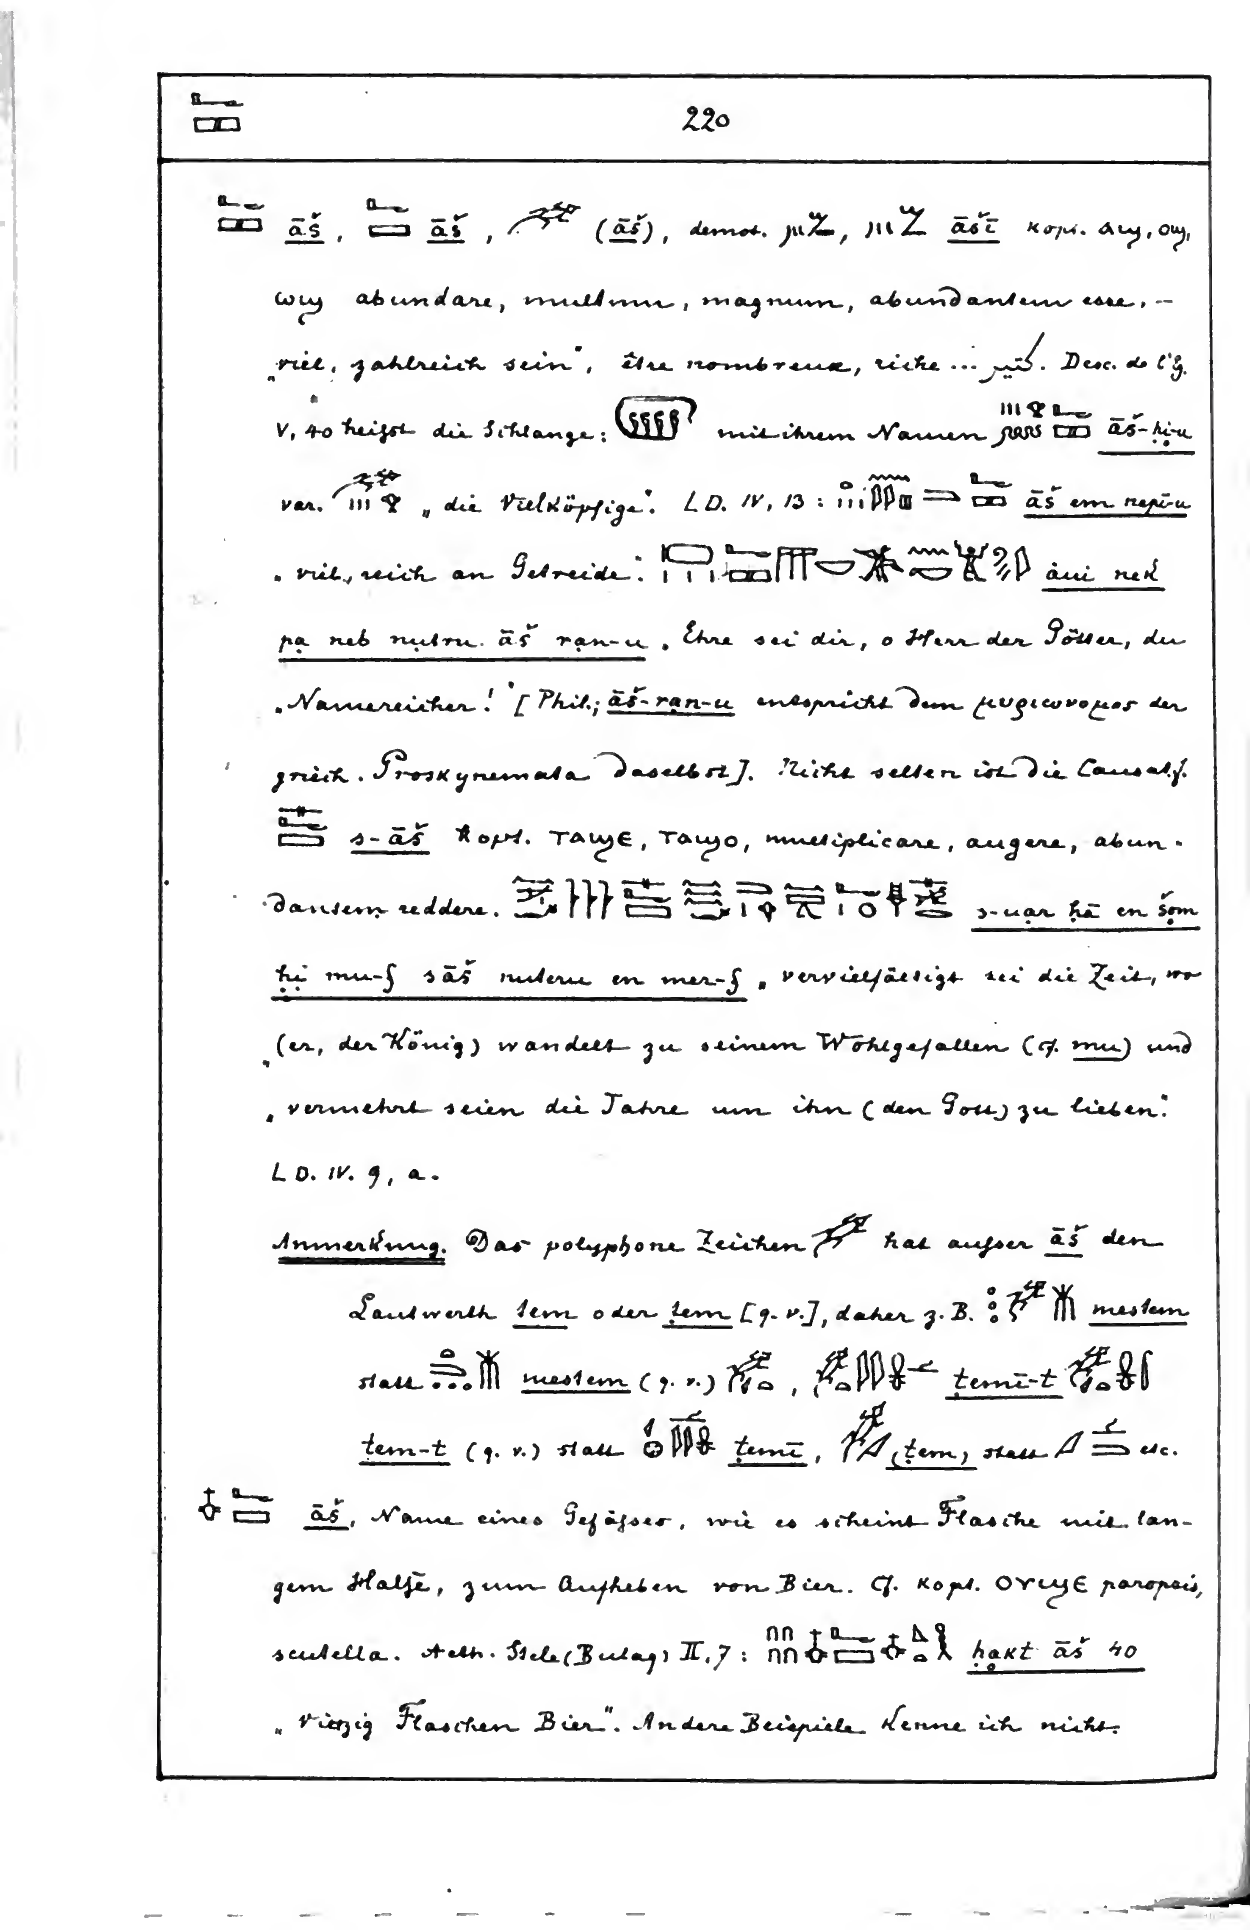 220
āš, āš, (āš), demot. āšī kopt. ⲁϣ, ⲟϣ,
ⲱϣ abundare, multum, magnum, abundantem esse, –
„viel, zahlreich sein“, être nombreux, riche ... كثير. Desc. de l'Eg.
V, 40 heißt die Schlange: mit ihrem Namen āš-ḥi-u
var. „die Vielköpfige“. LD. IV, 13: āš em nepi-u
„viel, reich an Getreide“. áui nek
pa neb nutru āš ran-u „Ehre sei dir, o Herr der Götter, du
„Namereicher!“ [Phil.; āš-ran-u entspricht dem μυριωνυμος der
griech. Proskynemata daselbst]. Nicht selten ist die Causat.f.
s-āš kopt. ⲧⲁϣⲉ, ⲧⲁϣⲟ, multiplicare, augere, abun-
dantem reddere. s-uar ḥā en šom
ḥi mu-f sāš nuteru en mer-f „vervielfältigt sei die Zeit, wo
„(er, der König) wandelt zu seinem Wohlgefallen (cf. mu) und
„vermehrt seien die Jahre um ihn (den Gott) zu lieben“.
LD. IV. 9, a.
Anmerkung. Das polyphone Zeichen hat außer āš den
Lautwerth tem oder ṭem [q.v.], daher z.B. mestem
statt mestem (q.v.) , ṭemī-t
ṭem-t (q.v.) statt ṭemī, (ṭem) statt etc.
āš, Name eines Gefäßes, wie es scheint Flasche mit lan-
gem Halse, zum Aufheben von Bier. Cf. kopt. ⲟⲩϣⲉ paropsis,
scutella. Aeth. Stele (Bulaq) II, 7: ḥakt āš 40
„vierzig Flaschen Bier“. Andere Beispiele kenne ich nicht.